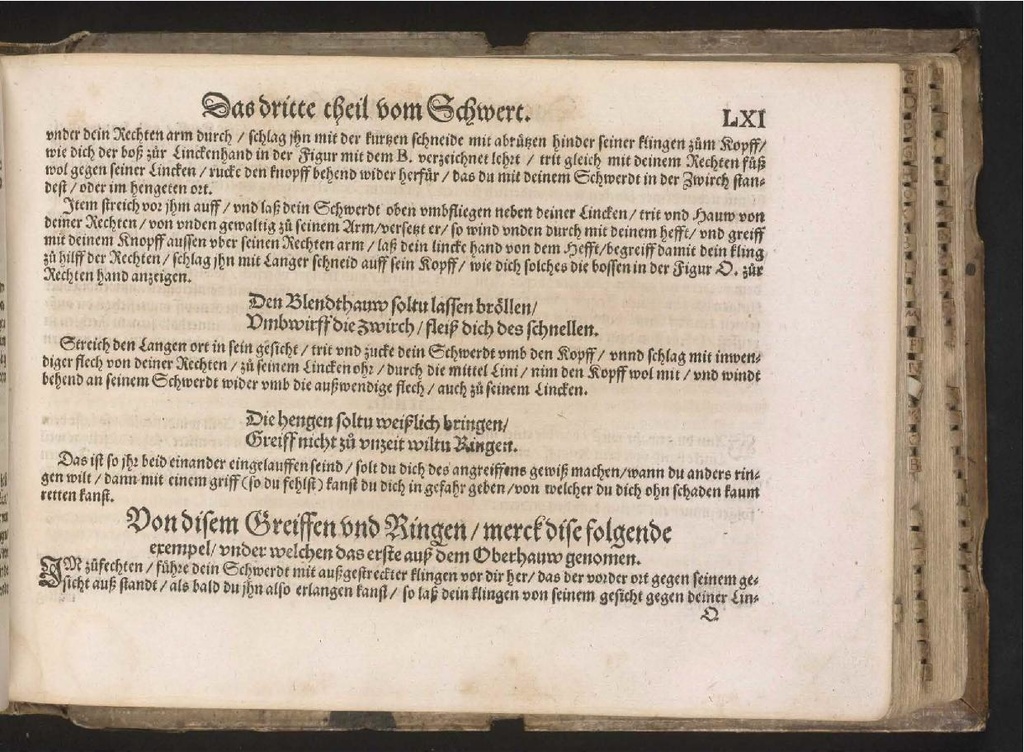 Das dritte theil vom Schwert.
LXI
vnder dein Rechten arm durch / schlag jhn mit der kurtzen schneide mit abrützen hinder seiner klingen zům Kopff/
wie dich der boß zůr Linckenhand in der Figur mit dem B. verzeichnet lehrt / trit gleich mit deinem Rechten fůß
wol gegen seiner Lincken / rucke den knopff behend wider herfür / das du mit deinem Schwerdt in der Zwirch stan-
dest / oder im hengeten ort.
Item streich vor jhm auff / vnd laß dein Schwerdt oben vmbfliegen neben deiner Lincken / trit vnd Hauw von
deiner Rechten / von vnden gewaltig zů seinem Arm/versetzt er/ so wind vnden durch mit deinem hefft/ vnd greiff
mit deinem Knopff aussen vber seinen Rechten arm / laß dein lincke hand von dem Hefft/begreiff damit dein kling
zů hilff der Rechten / schlag jhn mit Langer schneid auff sein Kopff / wie dich solches die bossen in der Figur O. zůr
Rechten hand anzeigen.
Den Blendthauw soltu lassen bröllen/
Vmbwirff die Zwirch / fleiß dich des schnellen.
Streich den Langen ort in sein gesicht / trit vnd zucke dein Schwerdt vmb den Kopff / vnnd schlag mit inwen-
diger flech von deiner Rechten / zů seinem Lincken ohr / durch die mittel Lini / nim den Kopff wol mit / vnd windt
behend an seinem Schwerdt wider vmb die außwendige flech / auch zů seinem Lincken.
Die hengen soltu weißlich bringen/
Greiff nicht zů vnzeit wiltu Ringen.
Das ist so jhr beid einander eingelauffen seind / solt du dich des angreiffens gewiß machen/wann du anders rin-
gen wilt / dann mit einem griff (so du fehlst) kanst du dich in gefahr geben /von welcher du dich ohn schaden kaum
retten kanst.
Von disem Greiffen vnd Ringen / merck dise folgende
exempel/ vnder welchen das erste auß dem Oberhauw genomen.
IM zůfechten / führe dein Schwerdt mit außgestreckter klingen vor dir her / das der vorder ort gegen seinem ge-
sicht auß standt / als bald du jhn also erlangen kanst / so laß dein klingen von seinem gesicht gegen deiner Lin-
O